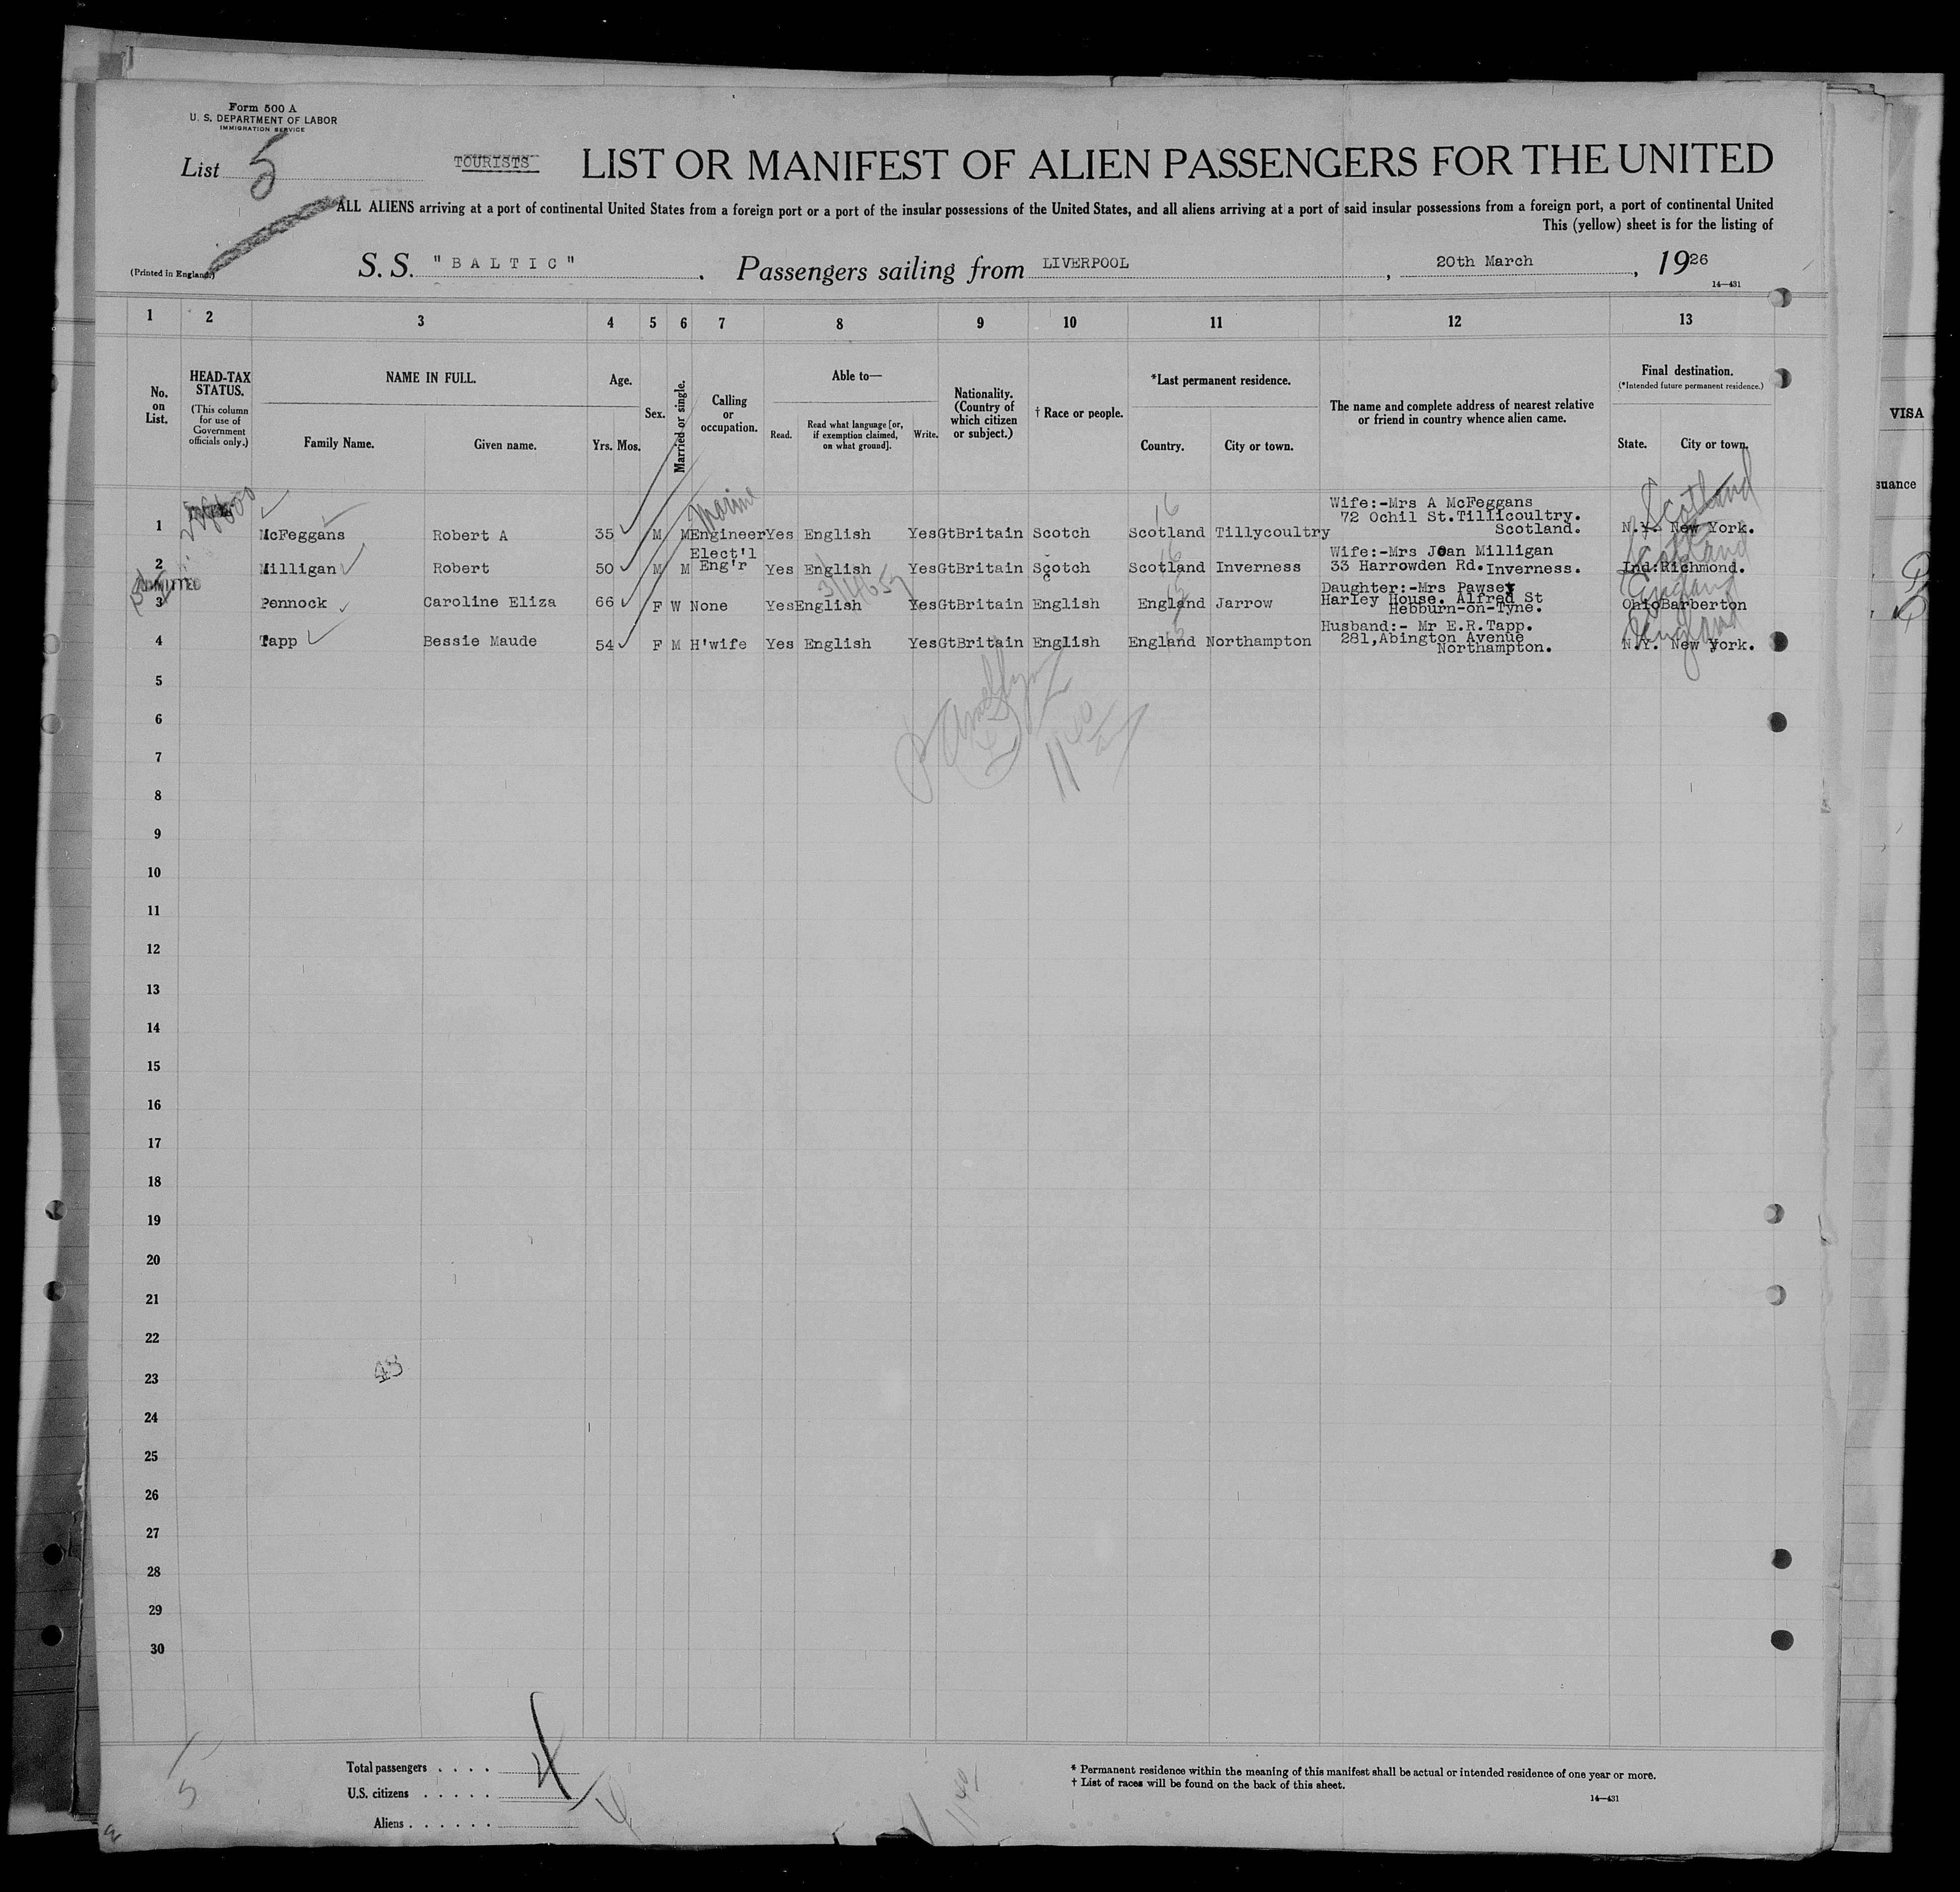 Form 500 A
U. S. DEPARTMENT OF LABOR
IMMIGRATION SERVICE
List 5
TOURISTS
LIST OR MANIFEST OF ALIEN PASSENGERS FOR THE UNITED
ALL ALIENS arriving at a port of continental United States from a foreign port or a port of the insular possessions of the United States, and all aliens arriving at a port of said insular possessions from a foreign port, a port of continental United
This (yellow) sheet is for the listing of
(Printed in England.)
S. S. "BALTIC" . Passengers sailing from LIVERPOOL , 20th March , 1926
14—431
1 2 3 4 5 6 7 8 9 10 11 12 13
No. on List.
HEAD-TAX STATUS.
(This column for use of Government officials only.)
NAME IN FULL.
Family Name. Given name.
Age.
Yrs. Mos.
Sex.
Married or single.
Calling or occupation.
Able to—
Read. Read what language [or, if exemption claimed, on what ground]. Write.
Nationality. (Country of which citizen or subject.)
† Race or people.
*Last permanent residence.
Country. City or town.
The name and complete address of nearest relative or friend in country whence alien came.
Final destination.
(*Intended future permanent residence.)
State. City or town.
VISA
suance
Marine
16
Scotland
Wife:-Mrs A McFeggans
72 Ochil St.Tillicoultry.
Scotland.
1 McFeggans Robert A 35 M M Engineer Yes English Yes GtBritain Scotch Scotland Tillycoultry N.Y. New York.
Elect'l
Eng'r
16
Scotland
Wife:-Mrs Joan Milligan
33 Harrowden Rd.Inverness.
2 Milligan Robert 50 M M Yes English Yes GtBritain Scotch Scotland Inverness Ind: Richmond.
ADMITTED
England
Daughter:-Mrs Pawsey
Harley House. Alfred St
Hebburn-on-Tyne.
3 Pennock Caroline Eliza 66 F W None Yes English Yes GtBritain English England Jarrow Ohio Barberton
England
Husband:- Mr E.R.Tapp.
281,Abington Avenue
Northampton.
4 Tapp Bessie Maude 54 F M H'wife Yes English Yes GtBritain English England Northampton N.Y. New York.
5
6
7
11 40
8
9
10
11
12
13
14
15
16
17
18
19
20
21
22
23
48
24
25
26
27
28
29
30
5
Total passengers . . . . 4
U.S. citizens . . . . .
Aliens . . . . . .
11 40
* Permanent residence within the meaning of this manifest shall be actual or intended residence of one year or more.
† List of races will be found on the back of this sheet.
14—431